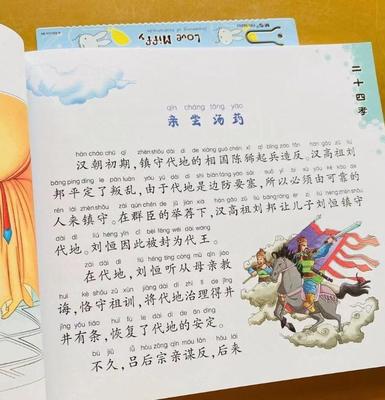 Love Miffy
二十四孝
qīn cháng tāng yào
亲尝汤药
hàn cháo chū qī zhèn shǒu dài dì de xiàng guó chén xī qǐ bīng zào fǎn hàn gāo zǔ liú
汉朝初期，镇守代地的相国陈豨起兵造反。汉高祖刘
bāng píng dìng le pàn luàn yóu yú dài dì shì biān fáng yào sài suǒ yǐ bì xū yóu kě kào de
邦平定了叛乱，由于代地是边防要塞，所以必须由可靠的
rén lái zhèn shǒu zài qún chén de jǔ jiàn xià hàn gāo zǔ liú bāng ràng ér zi liú héng zhèn shǒu
人来镇守。在群臣的举荐下，汉高祖刘邦让儿子刘恒镇守
dài dì liú héng yīn cǐ bèi fēng wéi dài wáng
代地。刘恒因此被封为代王。
zài dài dì liú héng tīng cóng mǔ qīn jiào
在代地，刘恒听从母亲教
huì kè shǒu zǔ xùn jiāng dài dì zhì lǐ de jǐng
诲，恪守祖训，将代地治理得井
jǐng yǒu tiáo huī fù le dài dì de ān dìng
井有条，恢复了代地的安定。
bù jiǔ lǚ hòu zōng qīn móu fǎn hòu lái
不久，吕后宗亲谋反，后来